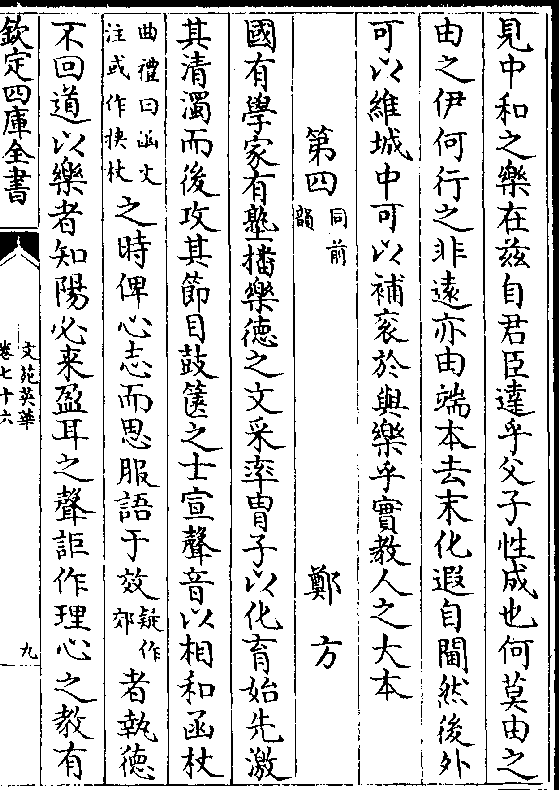 見中和之樂在兹自君臣達乎父子性成也何莫由之
由之伊何行之非遠亦由端本去末化遐自閫然後外
可以維城中可以補衮於與樂乎實教人之大本
第四同前韻　鄭方
國有學家有塾播樂德之文采率胄子以化育始先激
其清濁而後攻其節目鼓篋之士宣聲音以相和函杖
曲禮曰函丈注或作挟杖之時俾心志而思服語于效疑作郊者執德
不回道以樂者知陽必来盈耳之聲詎作理心之教有
欽定四庫全書
文苑英華
卷七十六
九